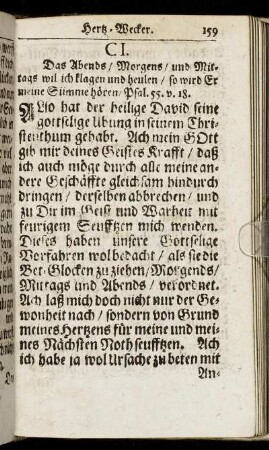 Hertz-Wecker. 159
CI.
Das Abends / Morgens / und Mit-
tags wil ich klagen und heulen / so wird Er
meine Stimme hören / Psal. 55. v. 18.
Also hat der heilige David seine
gottselige übung in seinem Chri-
stenthum gehabt. Ach mein GOtt
gib mir deines Geistes Krafft / daß
ich auch mög durch alle meine an-
dere Geschäffte gleichsam hindurch
dringen / derselben abbrechen / und
zu Dir im Geist und Warheit mit
feurigem Seufftzen mich wenden.
Dieses haben unsere Gottselige
Vorfahren wol bedacht / als sie die
Bet-Glocken zu ziehen / Morgends /
Mittags und Abends / verordnet.
Ach laß mich doch nicht nur der Ge-
wonheit nach / sondern von Grund
meines Hertzens für meine und mei-
nes Nächsten Noth seufftzen. Ach
ich habe ja wol Ursache zu beten mit
An-